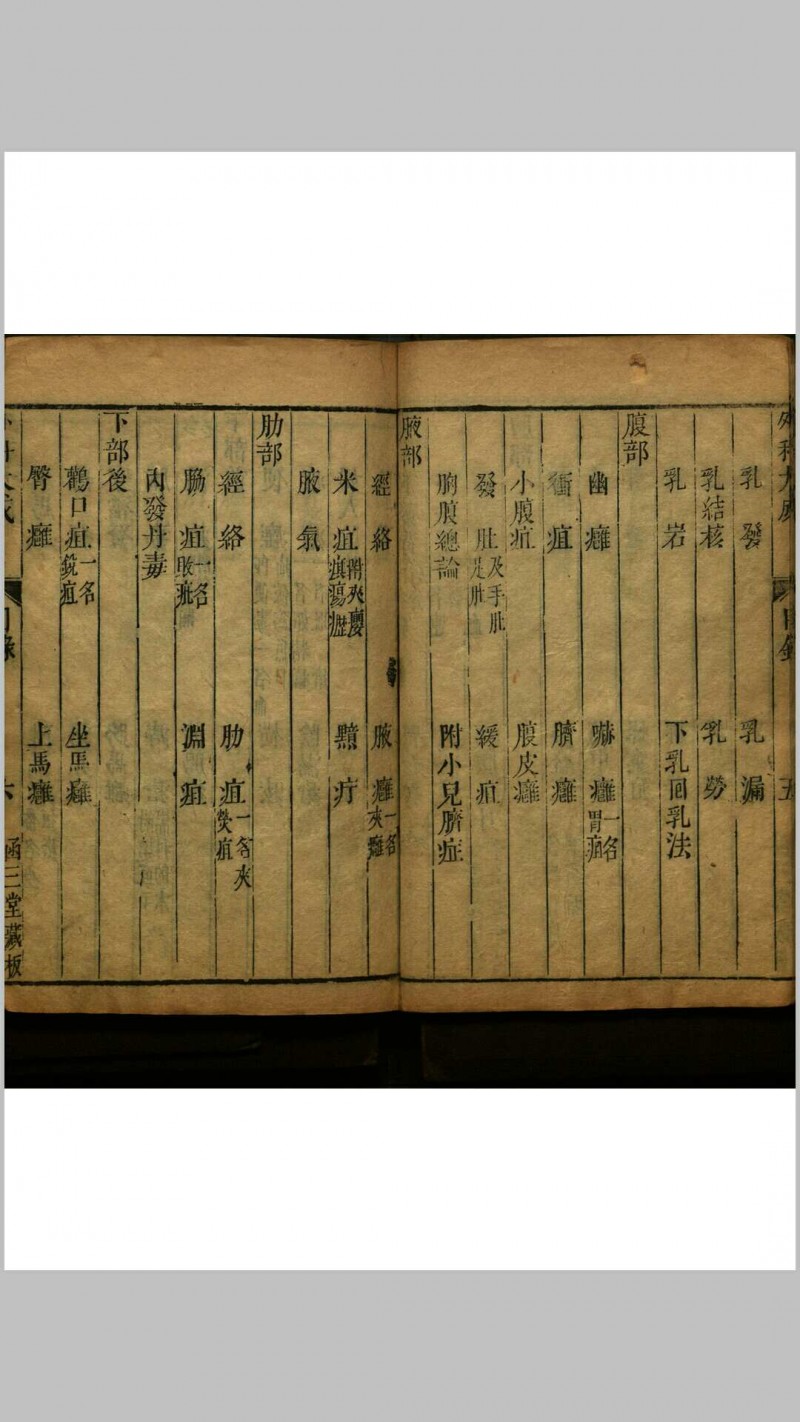 外科大成 目錄 五
乳發 乳漏
乳結核 乳勞
乳岩 下乳回乳法
腹部
幽癰 嚇癰一名胃疽
衝疽 臍癰
小腹疽 腹皮癰
發肚及手肚足肚 緩疽
胸腹總論 附小兒臍症
腋部
經絡 腋癰一名夾癰
米疽附夾癭瘰癧 黯疔
腋氣
肋部
經絡 肋疽一名夾熒疽
脇疽一名敗疵 淵疽
內發丹毒
下部後
鸛口疽一名銳疽 坐馬癰
臀癰 上馬癰
外科大成 目錄 六 函三堂藏板